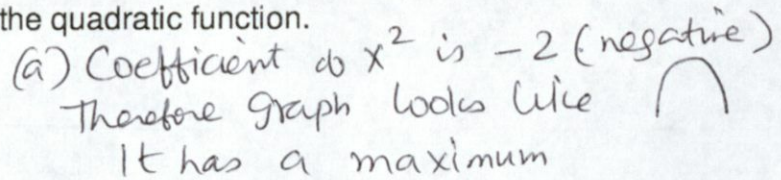 the quadratic function.
(a) Coefficient of x² is -2 (negative)
Therefore graph looks like
It has a maximum